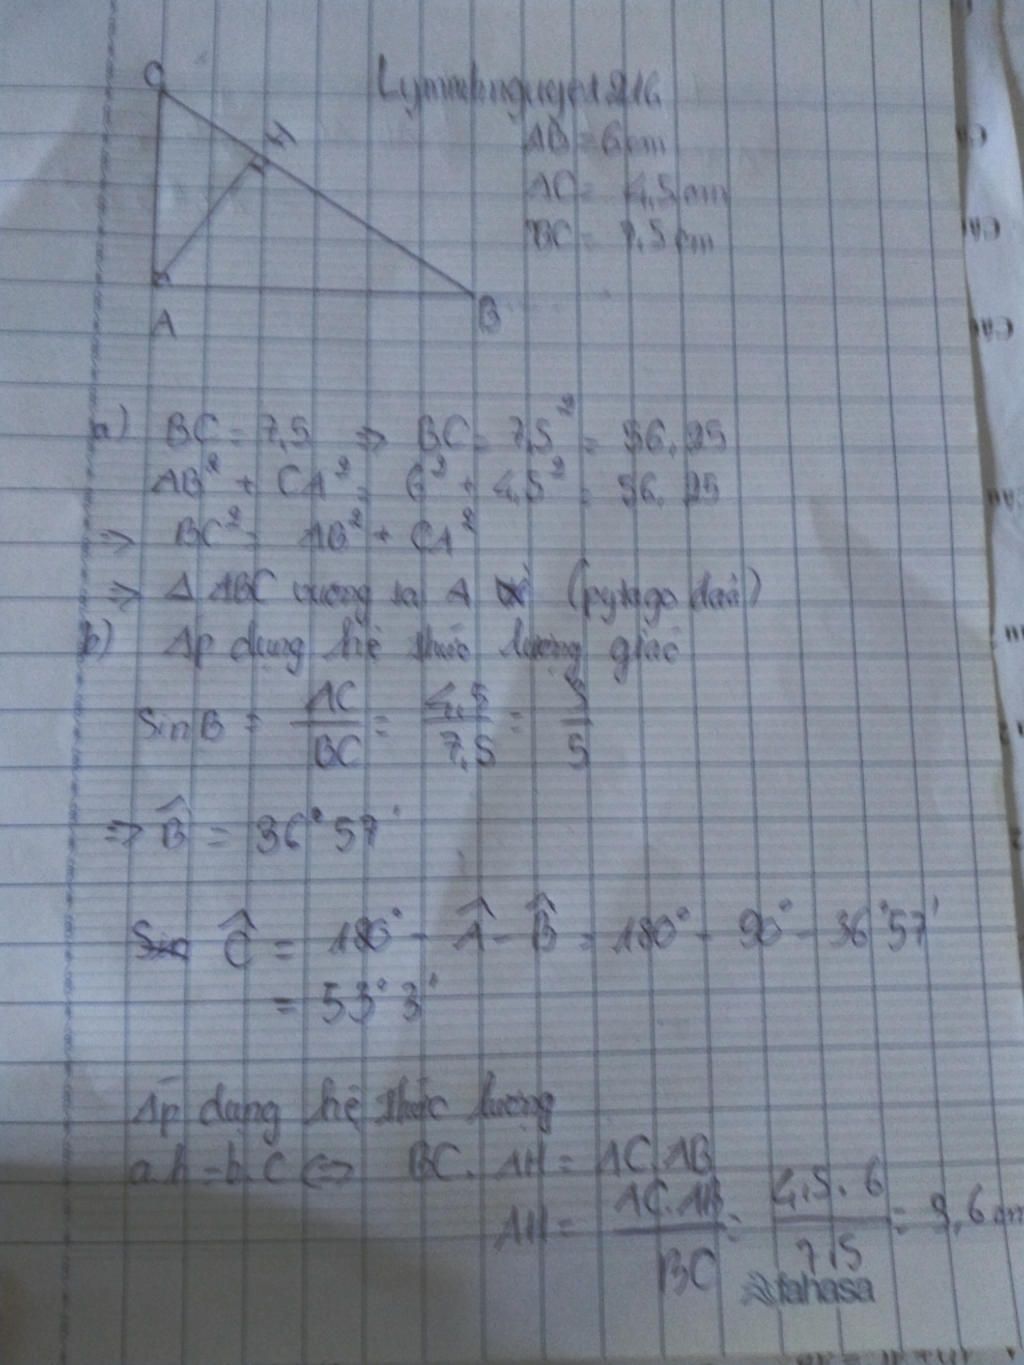 C
H
A
B
Lymminhnguyet216
AB = 6cm
AC = 4,5cm
BC = 7,5cm
a) BC = 7,5 => BC = 7,5² = 56,25
AB² + CA² = 6² + 4,5² = 56,25
=> BC² = AB² + CA²
=> Δ ABC vuông tại A (pytago đảo)
b) Áp dụng hệ thức lượng giác
Sin B = AC/BC = 4,5/7,5 = 3/5
=> B̂ = 36°57'
Ĉ = 180° - Â - B̂ = 180° - 90° - 36°57'
= 53°3'
Áp dụng hệ thức lượng
a.h = b.c <=> BC. AH = AC.AB
AH = AC.AB/BC = 4,5.6/7,5 = 3,6 cm
fahasa